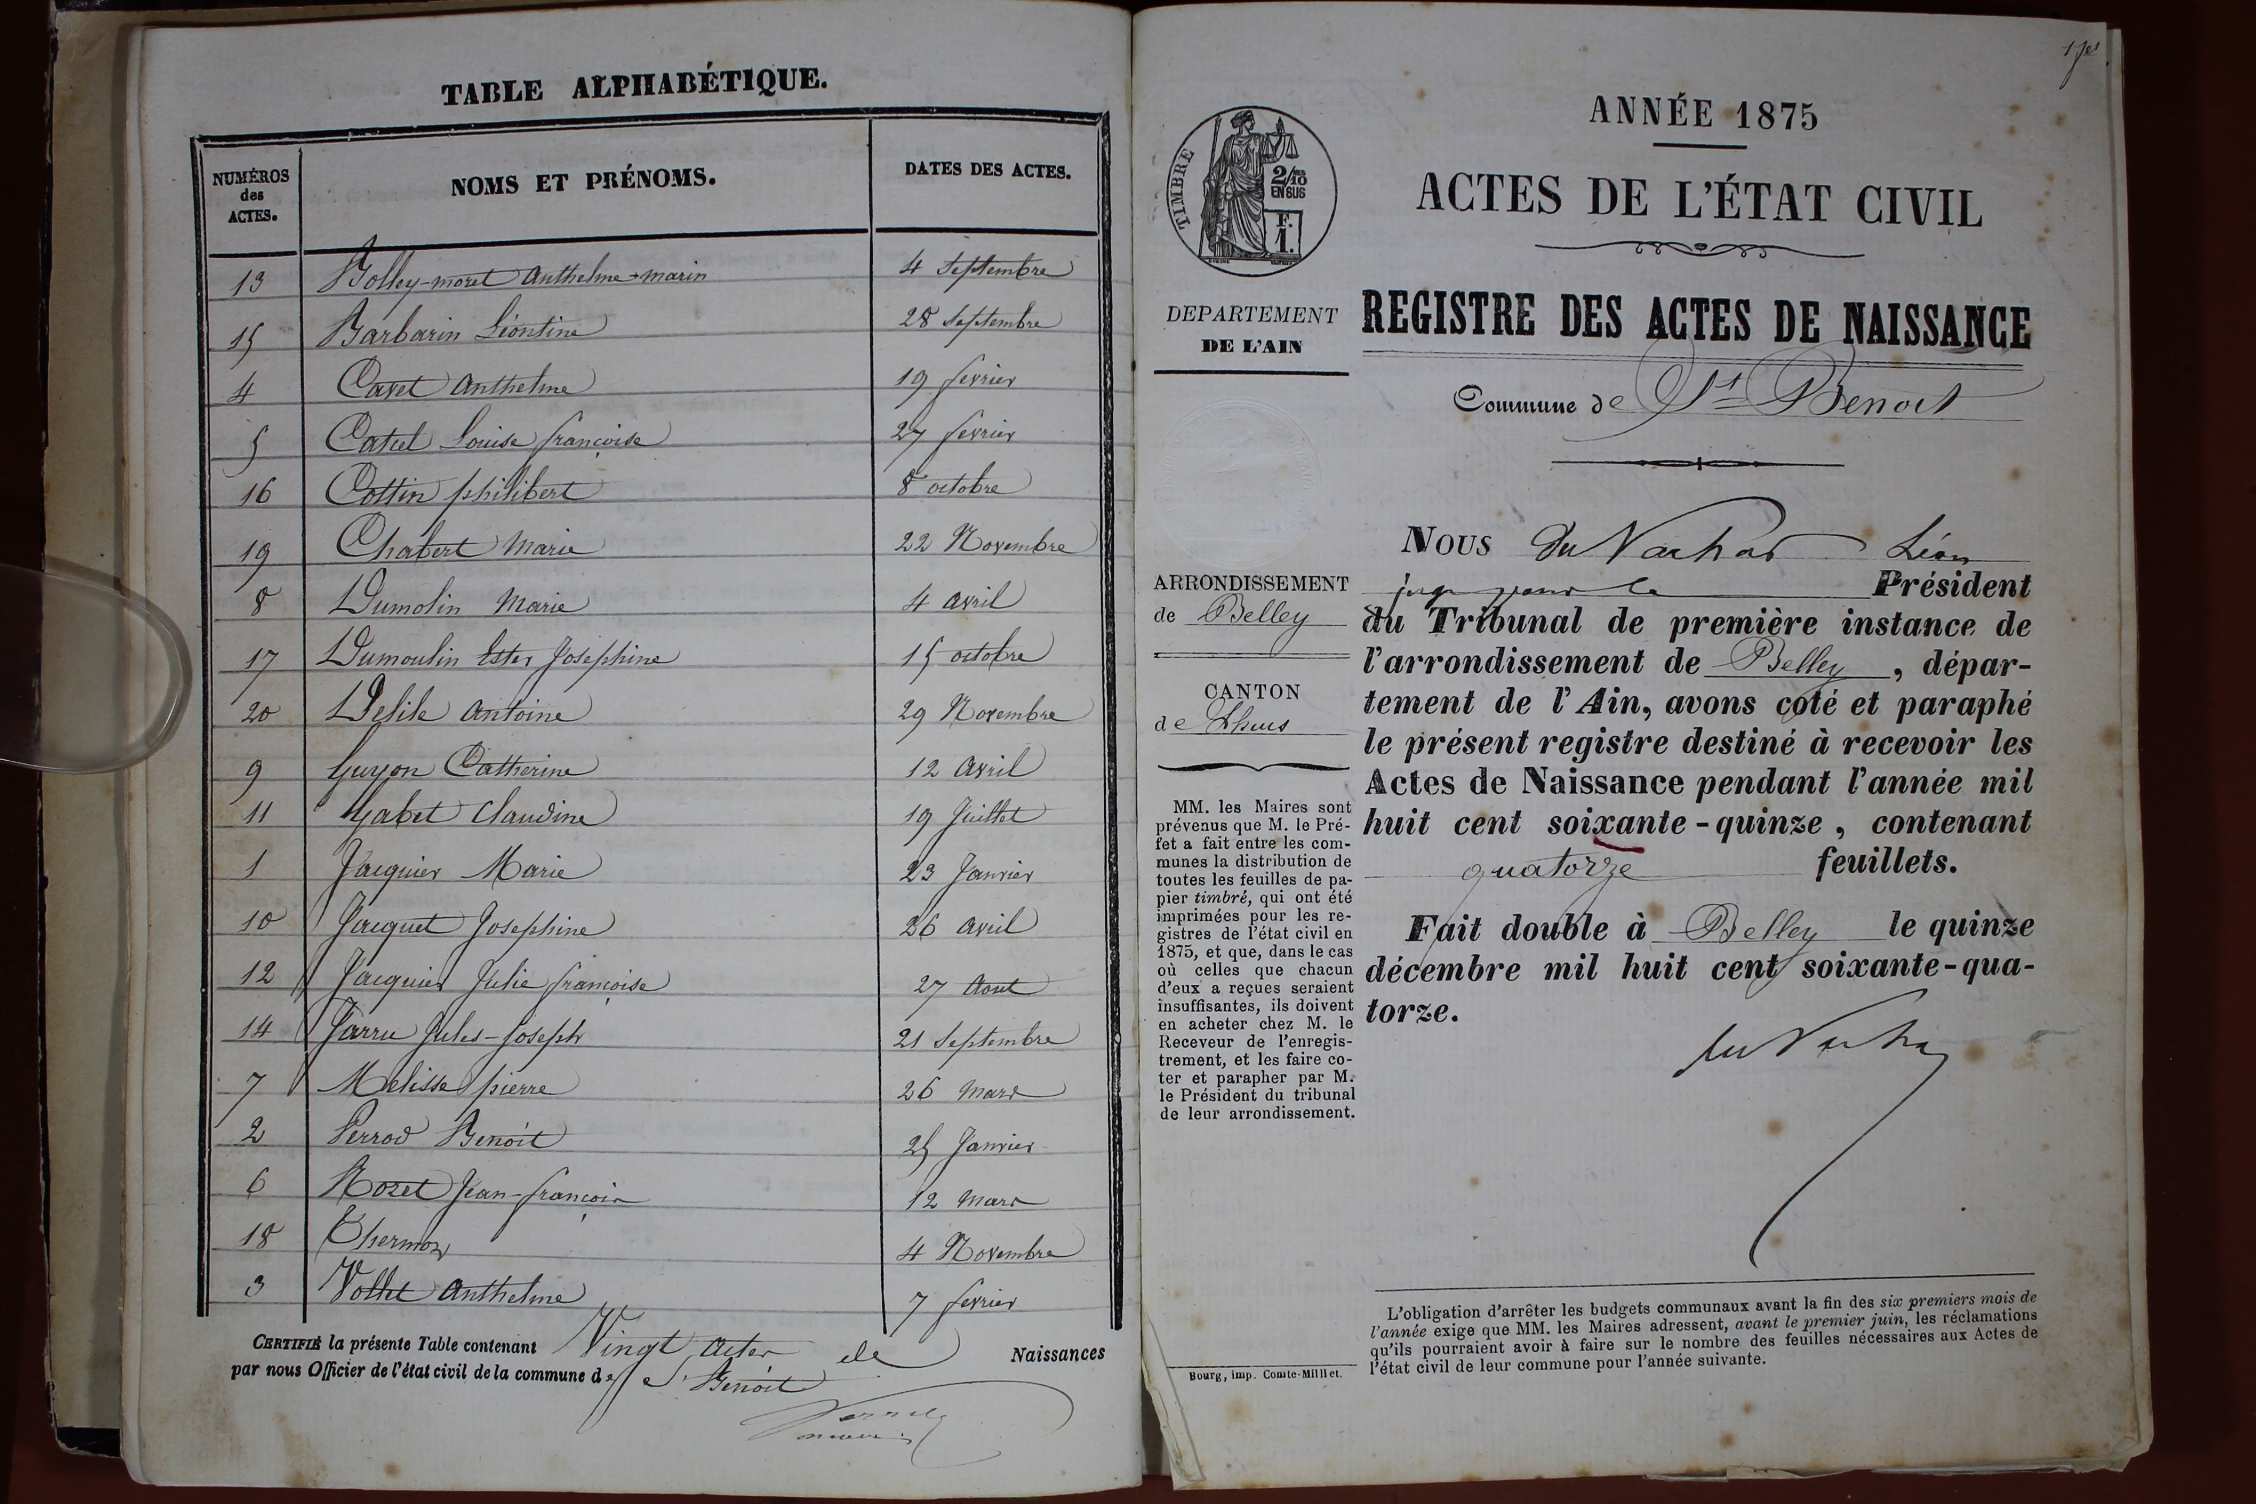 TABLE ALPHABÉTIQUE.
NUMÉROS des ACTES. NOMS ET PRÉNOMS. DATES DES ACTES.
13 Bolley-moret anthelme-marin 4 septembre
15 Barbarin Léontine 28 septembre
4 Cavet anthelme 19 fevrier
5 Catel Louise françoise 27 fevrier
16 Cottin philibert 8 octobre
19 Chabert Marie 22 Novembre
8 Dumolin Marie 4 avril
17 Dumoulin Ester Josephine 15 octobre
20 Antoine 29 Novembre
9 Guyon Catherine 12 avril
11 Gabet Claudine 19 Juillet
1 Jacquier Marie 23 Janvier
10 Jacquet Josephine 26 avril
12 Jacquier Julie françoise 27 Aout
14 Jules-Joseph 21 septembre
7 Melisse pierre 26 mars
2 Perrod Benoit 25 Janvier
6 Jean-françois 12 mars
18 Thermoz 4 Novembre
3 Vollet anthelme 7 fevrier
CERTIFIÉ la présente Table contenant Vingt actes de Naissances
par nous Officier de l'état civil de la commune de St Benoit
ANNÉE 1875
ACTES DE L'ÉTAT CIVIL
TIMBRE
2/10 EN SUS
F. 1.
DEPARTEMENT
DE L'AIN
REGISTRE DES ACTES DE NAISSANCE
Commune de St Benoit
ARRONDISSEMENT
de Belley
CANTON
de Lhuis
MM. les Maires sont
prévenus que M. le Pré-
fet a fait entre les com-
munes la distribution de
toutes les feuilles de pa-
pier timbré, qui ont été
imprimées pour les re-
gistres de l'état civil en
1875, et que, dans le cas
où celles que chacun
d'eux a reçues seraient
insuffisantes, ils doivent
en acheter chez M. le
Receveur de l'enregis-
trement, et les faire co-
ter et parapher par M.
le Président du tribunal
de leur arrondissement.
Bourg, imp. Comte-Milliet.
NOUS du Vachat Léon
juge pour le Président
du Tribunal de première instance de
l'arrondissement de Belley, dépar-
tement de l'Ain, avons coté et paraphé
le présent registre destiné à recevoir les
Actes de Naissance pendant l'année mil
huit cent soixante-quinze, contenant
quatorze feuillets.
Fait double à Belley le quinze
décembre mil huit cent soixante-qua-
torze.
L'obligation d'arrêter les budgets communaux avant la fin des six premiers mois de
l'année exige que MM. les Maires adressent, avant le premier juin, les réclamations
qu'ils pourraient avoir à faire sur le nombre des feuilles nécessaires aux Actes de
l'état civil de leur commune pour l'année suivante.